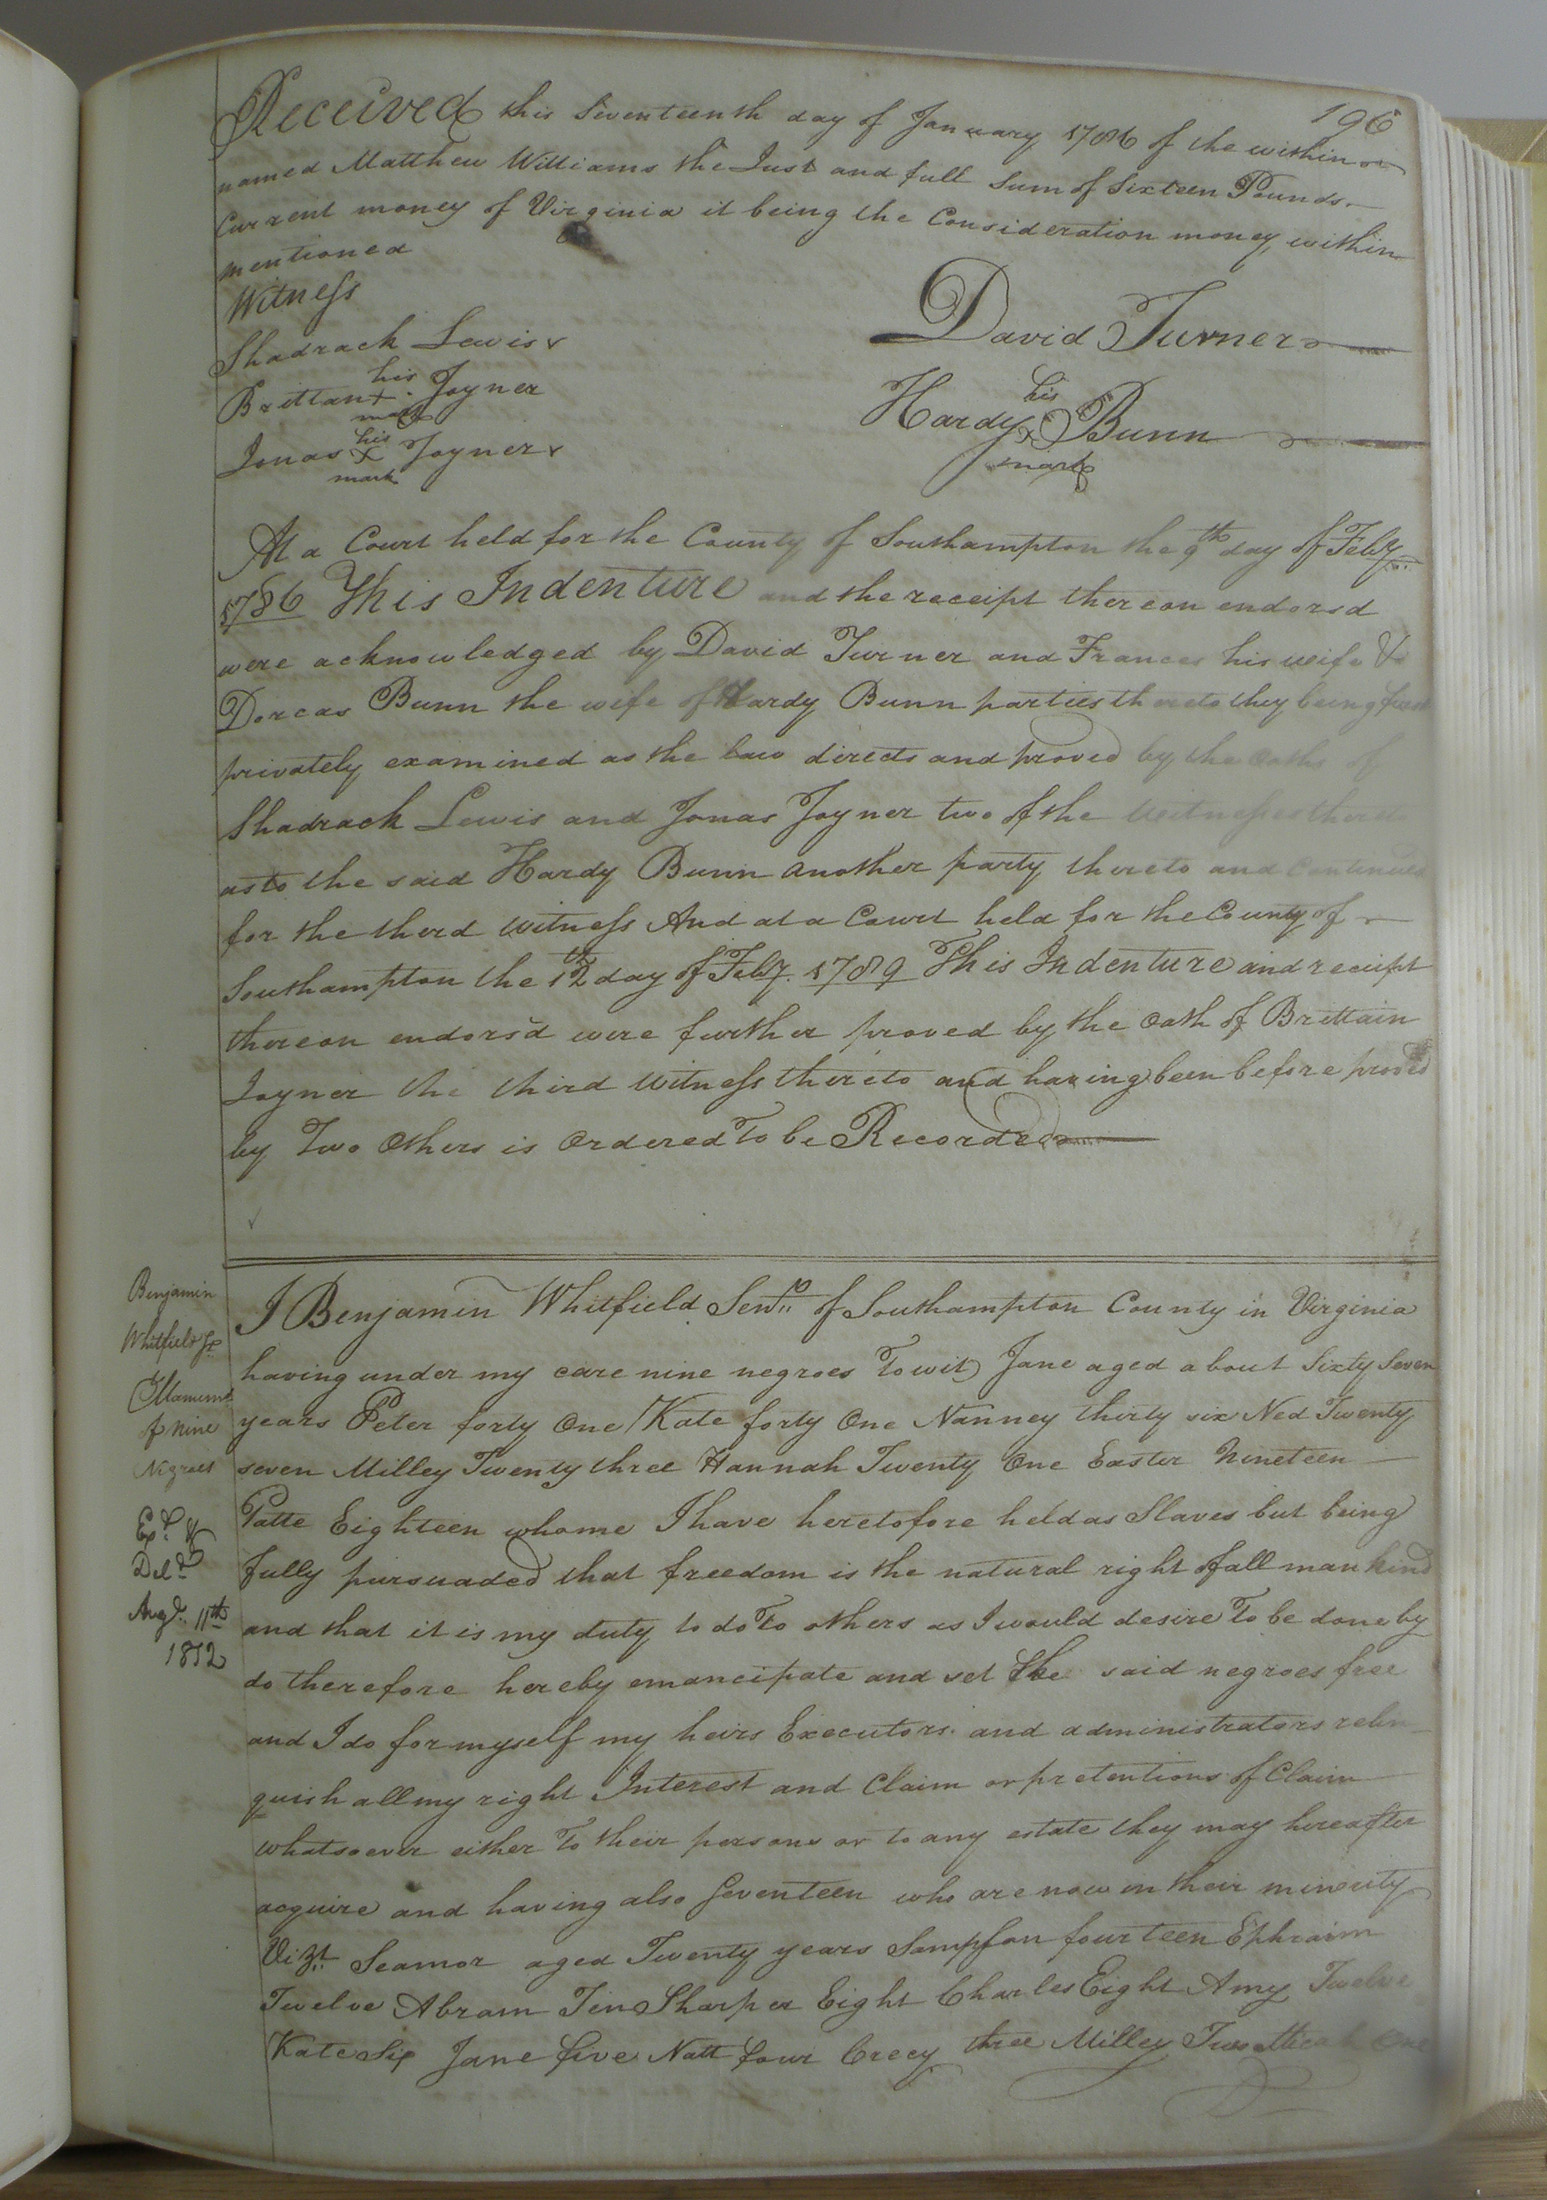 196
Received this Seventeenth day of January 1786 of the within
named Matthew Williams the Just and full Sum of Sixteen Pounds
Current money of Virginia it being the Consideration money within
mentioned
Witness
Shadrack Lewis
David Turner
his
Brittan + Joyner
mark
his
Hardy x Bunn
mark
his
Jonas x Joyner
mark
At a Court held for the County of Southampton the 9th day of Feby
1786 This Indenture and the receipt thereon endorsd
were acknowledged by David Turner and Frances his wife &
Dorcas Bunn the wife of Hardy Bunn parties thereto they being first
privately examined as the law directs and proved by the oaths of
Shadrack Lewis and Jonas Joyner two of the witnesses thereto
as to the said Hardy Bunn another party thereto and Continued
for the third witness And at a Court held for the County of
Southampton the 12th day of Feby. 1789 This Indenture and receipt
thereon endors'd were further proved by the oath of Brittain
Joyner the third witness thereto and having been before proved
by Two Others is Ordered To be Recorded
Benjamin
Whitfield Sr
Manumt
of nine
Negroes
Exd &
Deld
Augt. 11th
1812
I Benjamin Whitfield Senr of Southampton County in Virginia
having under my care nine negroes To wit Jane aged about Sixty Seven
years Peter forty One Kate forty One Nanney thirty six Ned Twenty
seven Milley Twenty three Hannah Twenty One Easter Nineteen
Patte Eighteen whome I have heretofore held as Slaves but being
fully pursuaded that freedom is the natural right of all mankind
and that it is my duty to do To others as I would desire To be done by
do therefore hereby emancipate and set the said negroes free
and I do for myself my heirs Executors and administrators relin
quish all my right Interest and Claim or pretentions of Claim
whatsoever either To their persons or to any estate they may hereafter
acquire and having also Seventeen who are now in their minority
Vizt Seamor aged Twenty years Sampson fourteen Ephraim
Twelve Abram Ten Sharper Eight Charles Eight Amy Twelve
Kate Six Jane five Natt four Crecy three Milley Two One